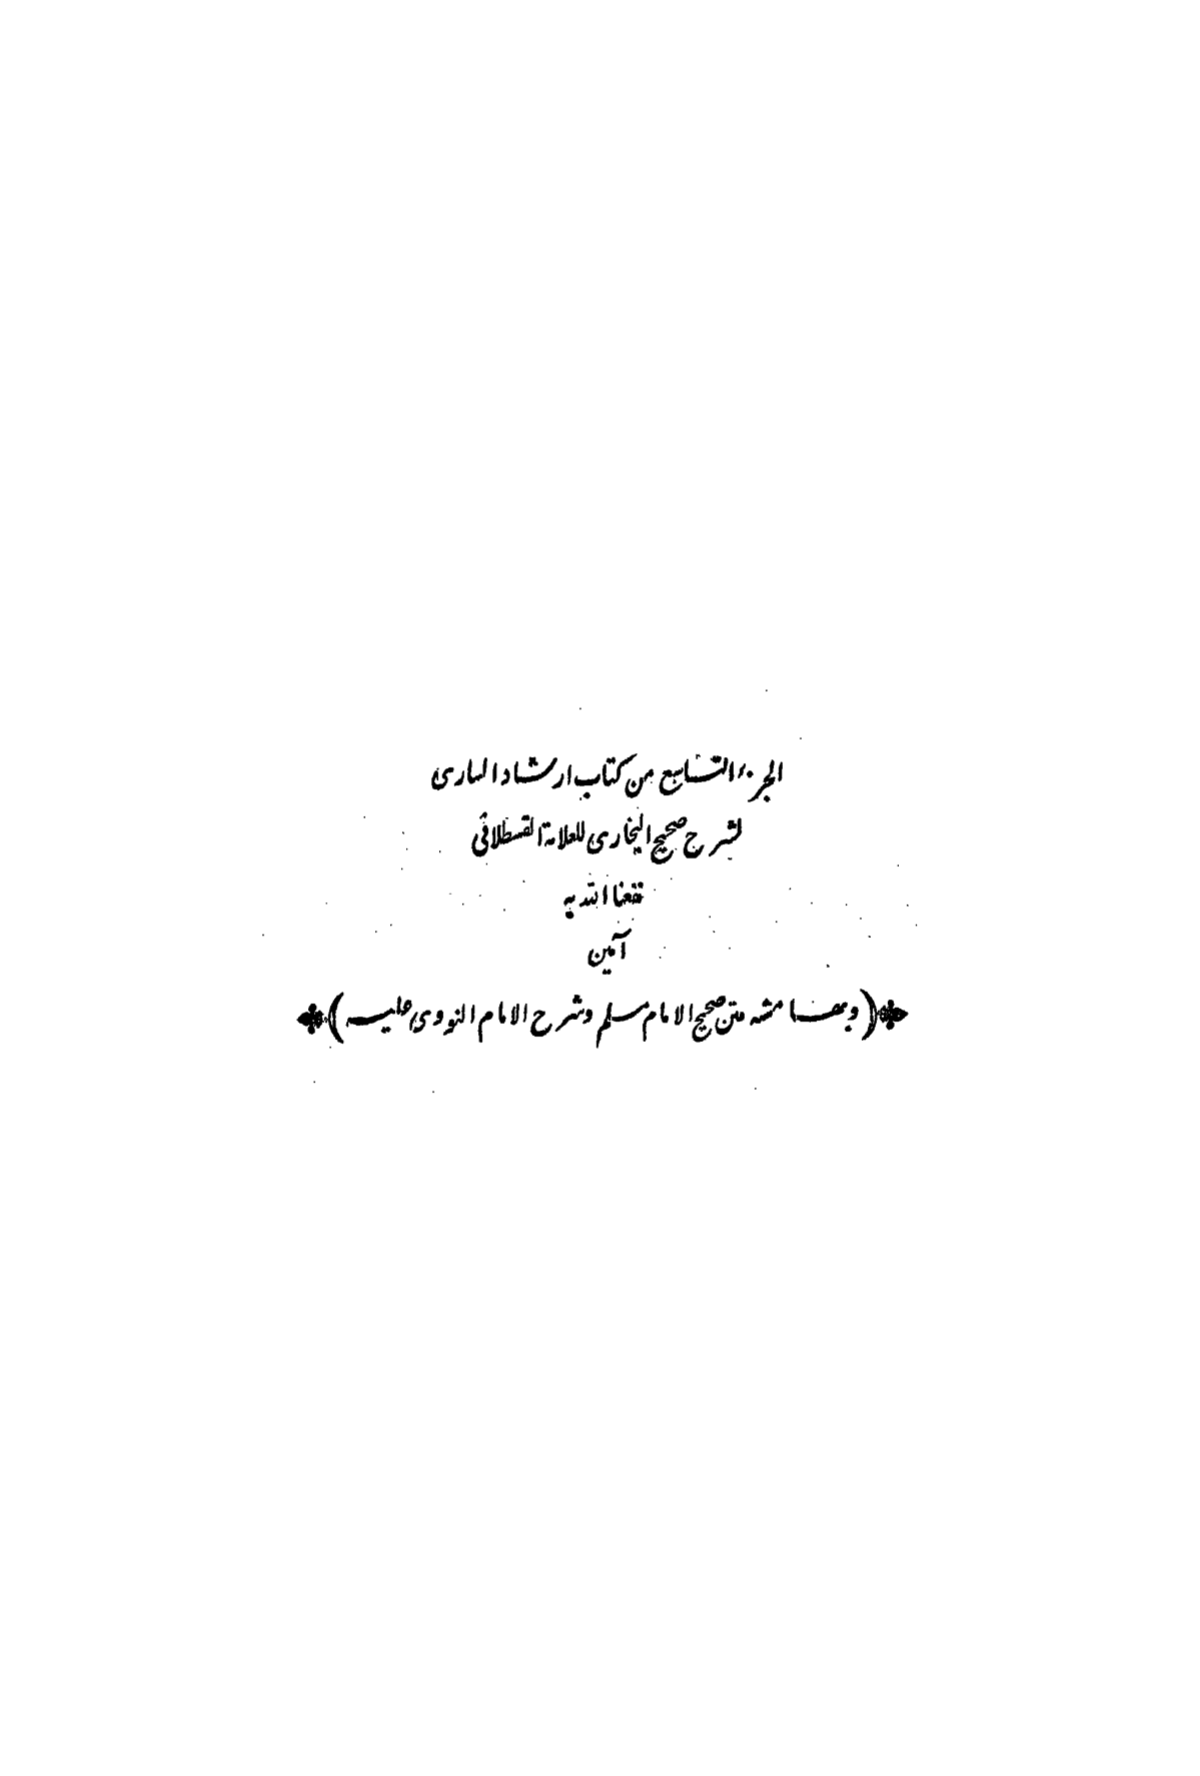 الجزء التاسع من كتاب ارشاد السارى
لشرح صحيح البخارى للعلامة القسطلانى
نفعنا الله به
آمين
(وبهامشه متن صحيح الامام مسلم وشرح الامام النووى عليه)